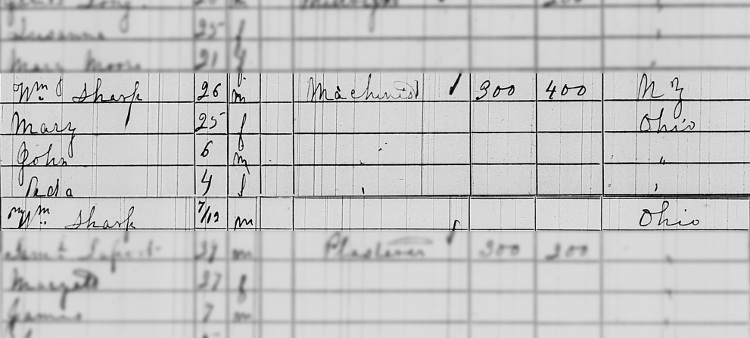 Susanna 25 f
Mary Moore 21 f
Wm Sharp 26 m Machinist 300 400 N Y
Mary 25 f Ohio
John 6 m "
Leda 4 f "
Wm Sharp 7/12 m Ohio
37 m Plasterer 300 200
Margett 37 f
James 7 m